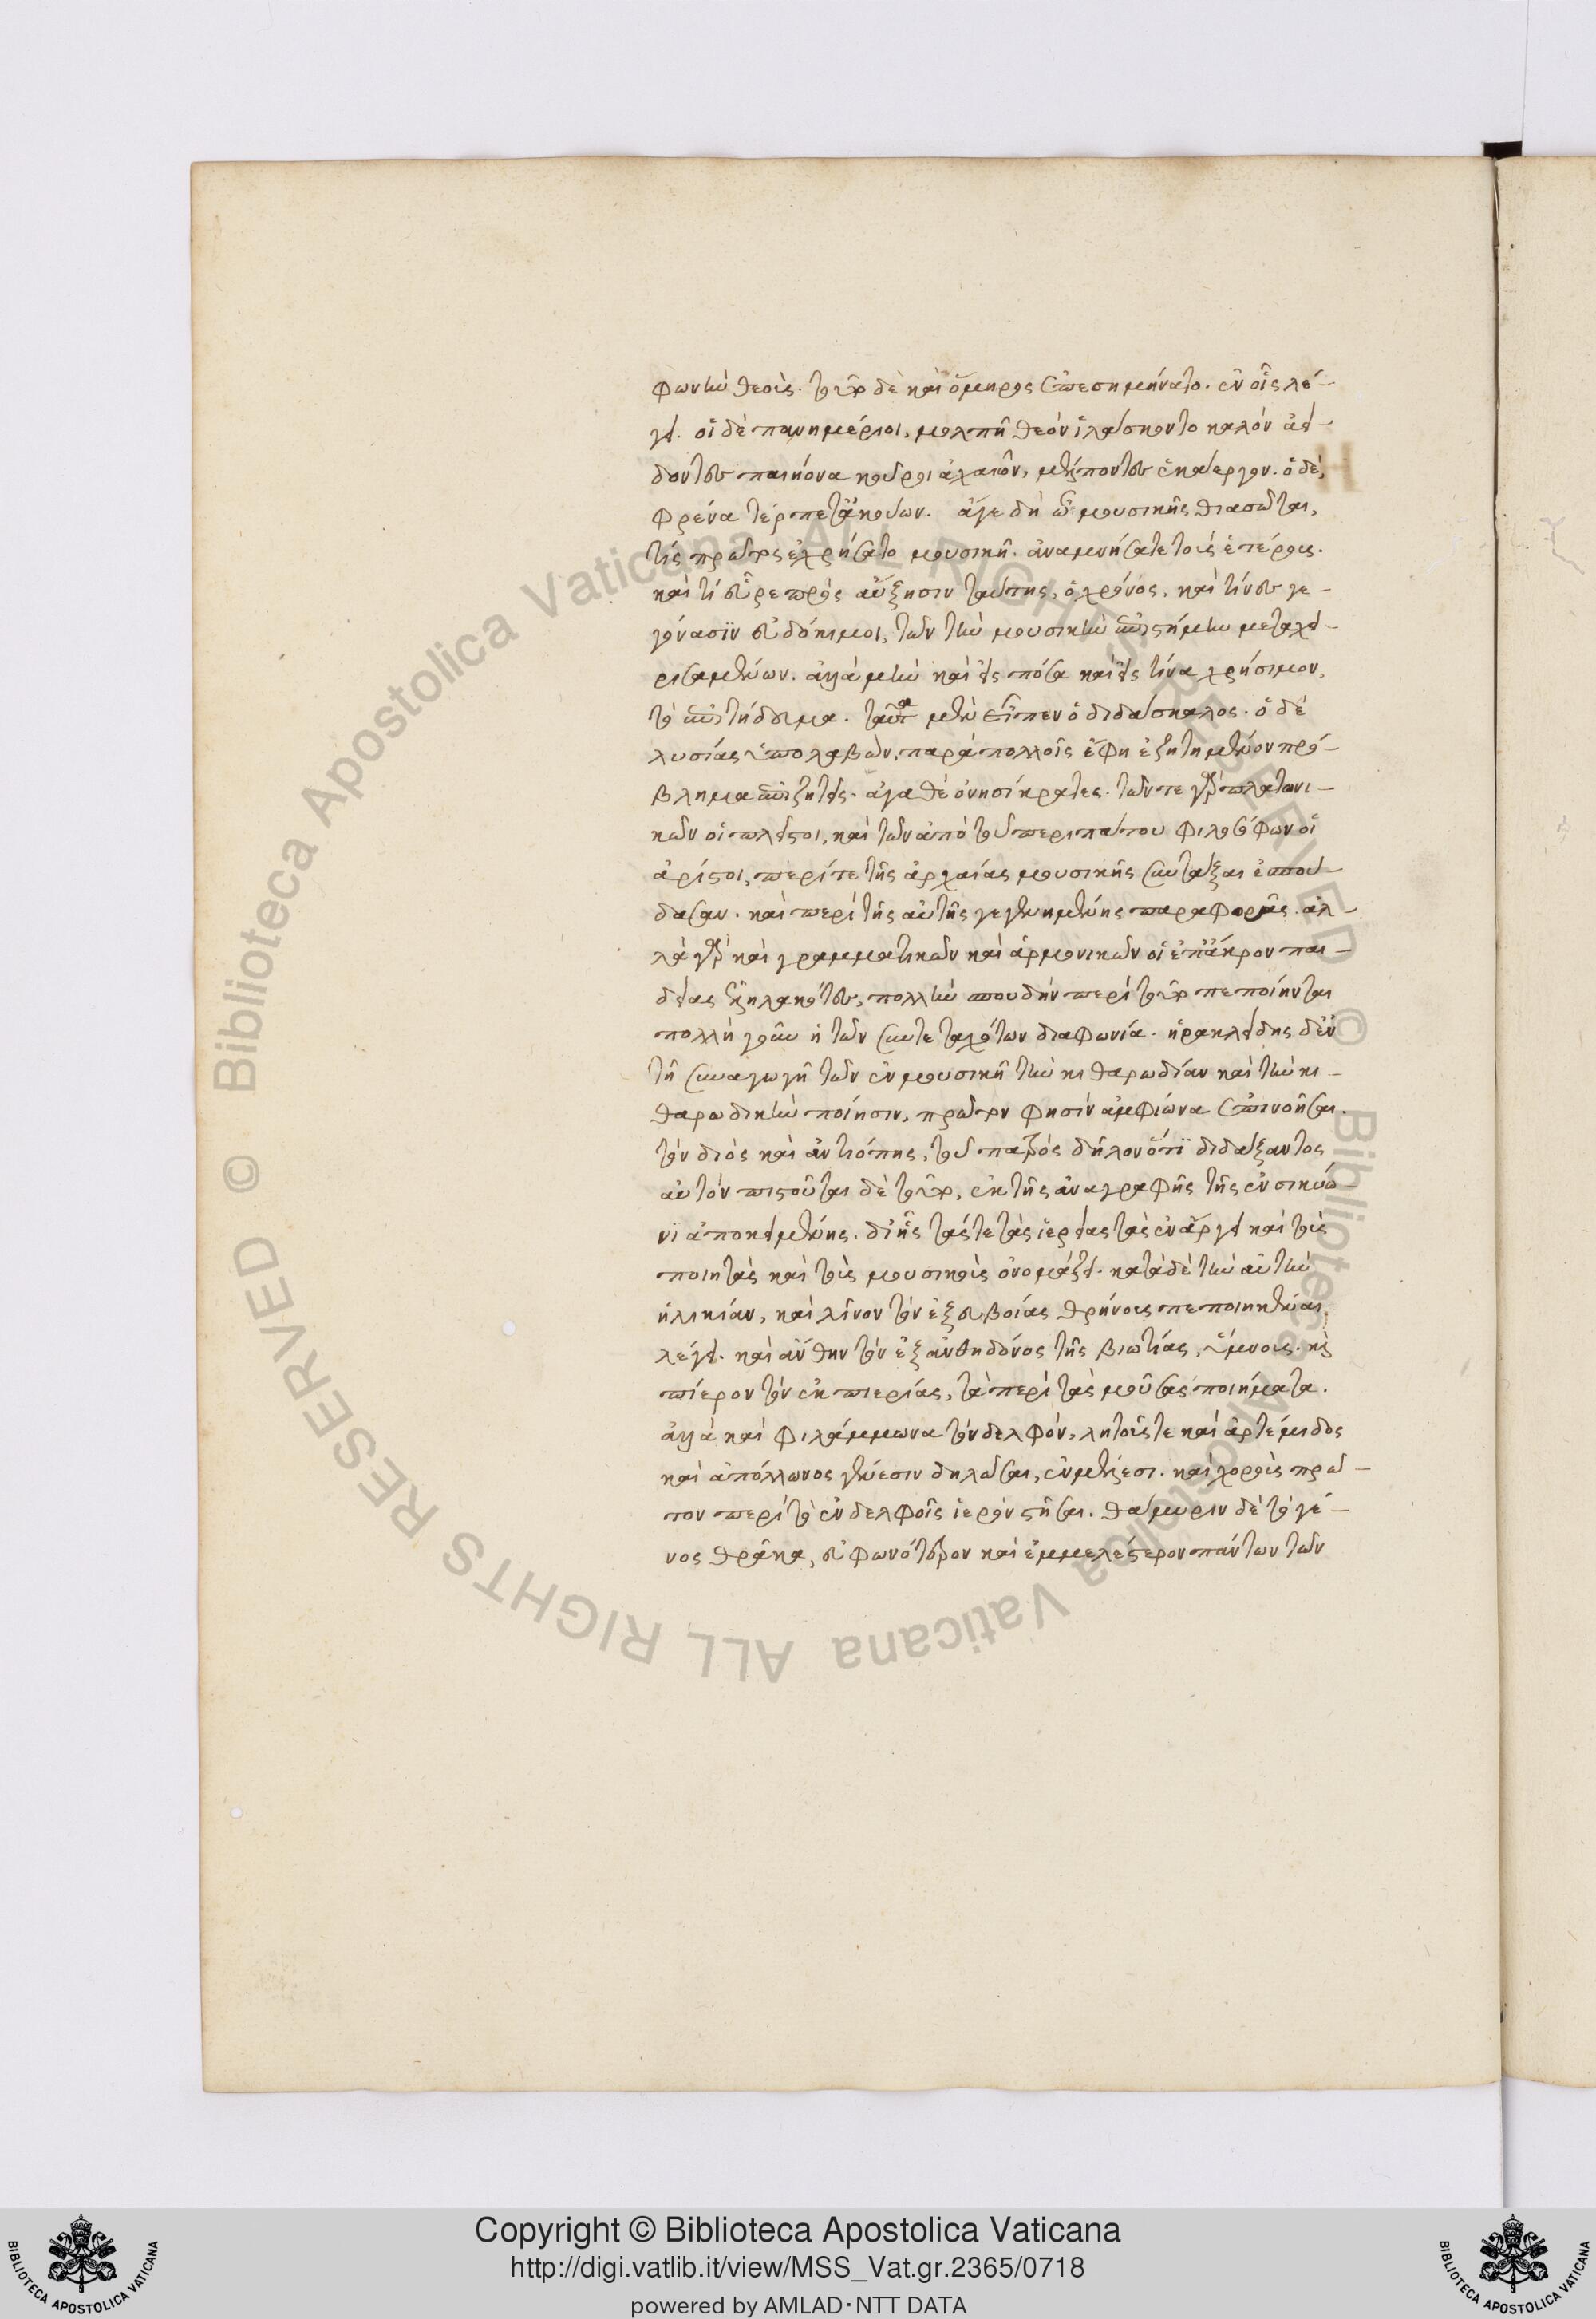 φωνὴν θεούς. τοῦτο δὲ καὶ ὅμηρος ἐπεσημήνατο. ἐν οἷς λέ-
γει. οἱ δὲ πανημέριοι, μολπῇ θεὸν ἱλάσκοντο καλὸν ἀεί-
δοντες παιήονα κοῦροι ἀχαιῶν, μέλποντες ἑκάεργον. ὁ δὲ,
φρένα τέρπετ' ἀκούων. ἄγε δὴ ὦ μουσικῆς θιασῶται,
τίς πρῶτος ἐχρήσατο μουσικῇ. ἀναμνήσατε τοὺς ἑτέρους.
καὶ τί εὗρε πρὸς αὔξησιν ταύτης, ὁ χρόνος, καὶ τίνες γε-
γόνασϊν εὐδόκιμοι, τῶν τὴν μουσικὴν ἐπιστήμην μεταχει-
ρισαμένων. ἀλλὰ μὴν καὶ εἰς πόσα καὶ εἰς τίνα χρήσιμον,
τὸ ἐπιτήδευμα. ταῦτα μὲν εἶπεν ὁ διδάσκαλος. ὁ δὲ
λυσίας ὑπολαβὼν, παρὰ πολλοῖς ἔφη ἐζητημένον πρό-
βλημα ἐπιζητεῖς. ἀγαθὲ ὀνησίκρατες. τῶν τε γὰρ πλατωνι-
κῶν οἱ πλεῖστοι, καὶ τῶν ἀπὸ τοῦ περιπάτου φιλοσόφων οἱ
ἄριστοι, περί τε τῆς ἀρχαίας μουσικῆς συντάξαι ἐσπού-
δασαν. καὶ περὶ τῆς αὐτῆς γεγενημένης παραφορᾶς. ἀλ-
λὰ γὰρ καὶ γραμματικῶν καὶ ἁρμονικῶν οἱ ἐπ' ἄκρον παι-
δείας ἐληλακότες, πολλὴν σπουδὴν περὶ τοῦτο πεποίηνται
πολλὴ γοῦν ἡ τῶν συντεταχότων διαφωνία. ἡρακλείδης δ' ἐν
τῇ συναγωγῇ τῶν ἐν μουσικῇ τὴν κιθαρωδίαν καὶ τὴν κι-
θαρωδικὴν ποίησιν, πρῶτον φησὶν ἀμφίωνα ἐπινοῆσαι.
τὸν διὸς καὶ ἀντιόπης, τοῦ πατρὸς δηλονότι διδάξαντος
αὐτόν πιστοῦται δὲ τοῦτο, ἐκ τῆς ἀναγραφῆς τῆς ἐν σικυῶ-
νϊ ἀποκειμένης. δι' ἧς τάς τε τὰς ἱερείας τὰς ἐν ἄργει καὶ τοὺς
ποιητὰς καὶ τοὺς μουσικοὺς ὀνομάζει. κατὰ δὲ τὴν αὐτὴν
ἡλικίαν, καὶ λίνον τὸν ἐξ εὐβοίας θρήνους πεποιηκέναι
λέγει. καὶ ἄνθην τὸν ἐξ ἀνθηδόνος τῆς βιωτίας, ὕμνους. καὶ
πίερον τὸν ἐκ πιερίας, τὰ περὶ τὰς μούσας ποιήματα.
ἀλλὰ καὶ φιλάμμωνα τὸν δελφόν, λητοῦς τε καὶ ἀρτέμιδος
καὶ ἀπόλλωνος γένεσιν δηλῶσαι, ἐν μέλεσι. καὶ χοροὺς πρῶ-
τον περὶ τὸ ἐν δελφοῖς ἱερὸν στῆσαι. θάμυριν δὲ τὸ γέ-
νος θρᾷκα, εὐφωνότερον καὶ ἐμμελέστερον πάντων τῶν
© Biblioteca Apostolica Vaticana ALL RIGHTS RESERVED © Biblioteca Apostolica Vaticana ALL RIGHTS RESERVED
BIBLIOTECA APOSTOLICA VATICANA
Copyright © Biblioteca Apostolica Vaticana
http://digi.vatlib.it/view/MSS_Vat.gr.2365/0718
powered by AMLAD·NTT DATA
BIBLIOTECA APOSTOLICA VATICANA